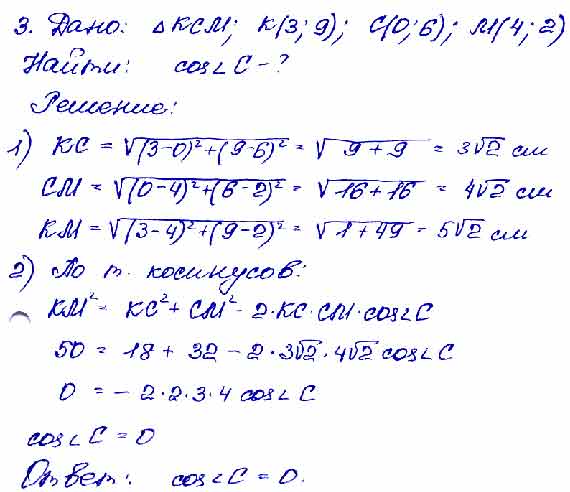 3. Дано: △KCM; K(3; 9); C(0; 6); M(4; 2)
Найти: cos∠C - ?
Решение:
1) KC = √(3-0)²+(9-6)² = √9+9 = 3√2 см
CM = √(0-4)²+(6-2)² = √16+16 = 4√2 см
KM = √(3-4)²+(9-2)² = √1+49 = 5√2 см
2) По т. косинусов:
KM² = KC² + CM² - 2·KC·CM·cos∠C
50 = 18 + 32 - 2·3√2·4√2 cos∠C
0 = -2·2·3·4 cos∠C
cos∠C = 0
Ответ: cos∠C = 0.